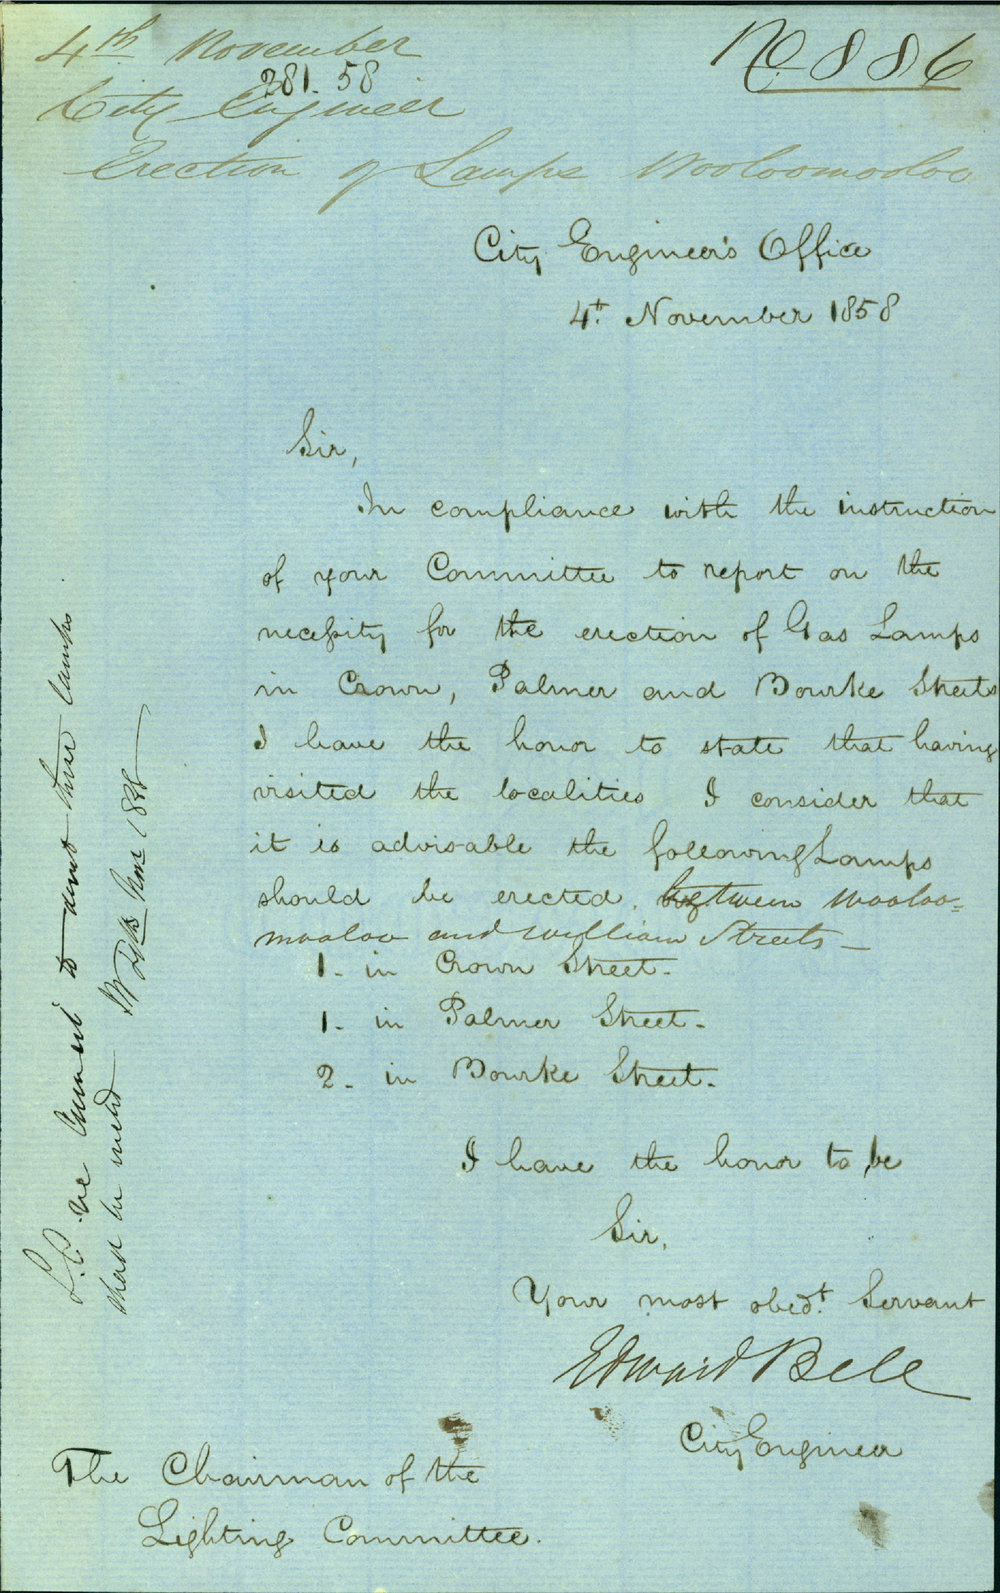 4th November
No 886
281. 58
City Engineer
Erection of Lamps Wooloomooloo
City Engineer's Office
4th November 1858
Sir,
In compliance with the instruction
of your Committee to report on the
necessity for the erection of Gas Lamps
in Crown, Palmer and Bourke Streets
I have the honor to state that having
visited the localities I consider that
it is advisable the following Lamps
should be erected. between Wooloo=
mooloo and William Streets
1. in Crown Street.
1. in Palmer Street.
2. in Bourke Street.
I have the honor to be
Sir,
Your most obedt. Servant
Edward Bell
City Engineer
The Chairman of the
Lighting Committee.
L.C. to these lamps
1858